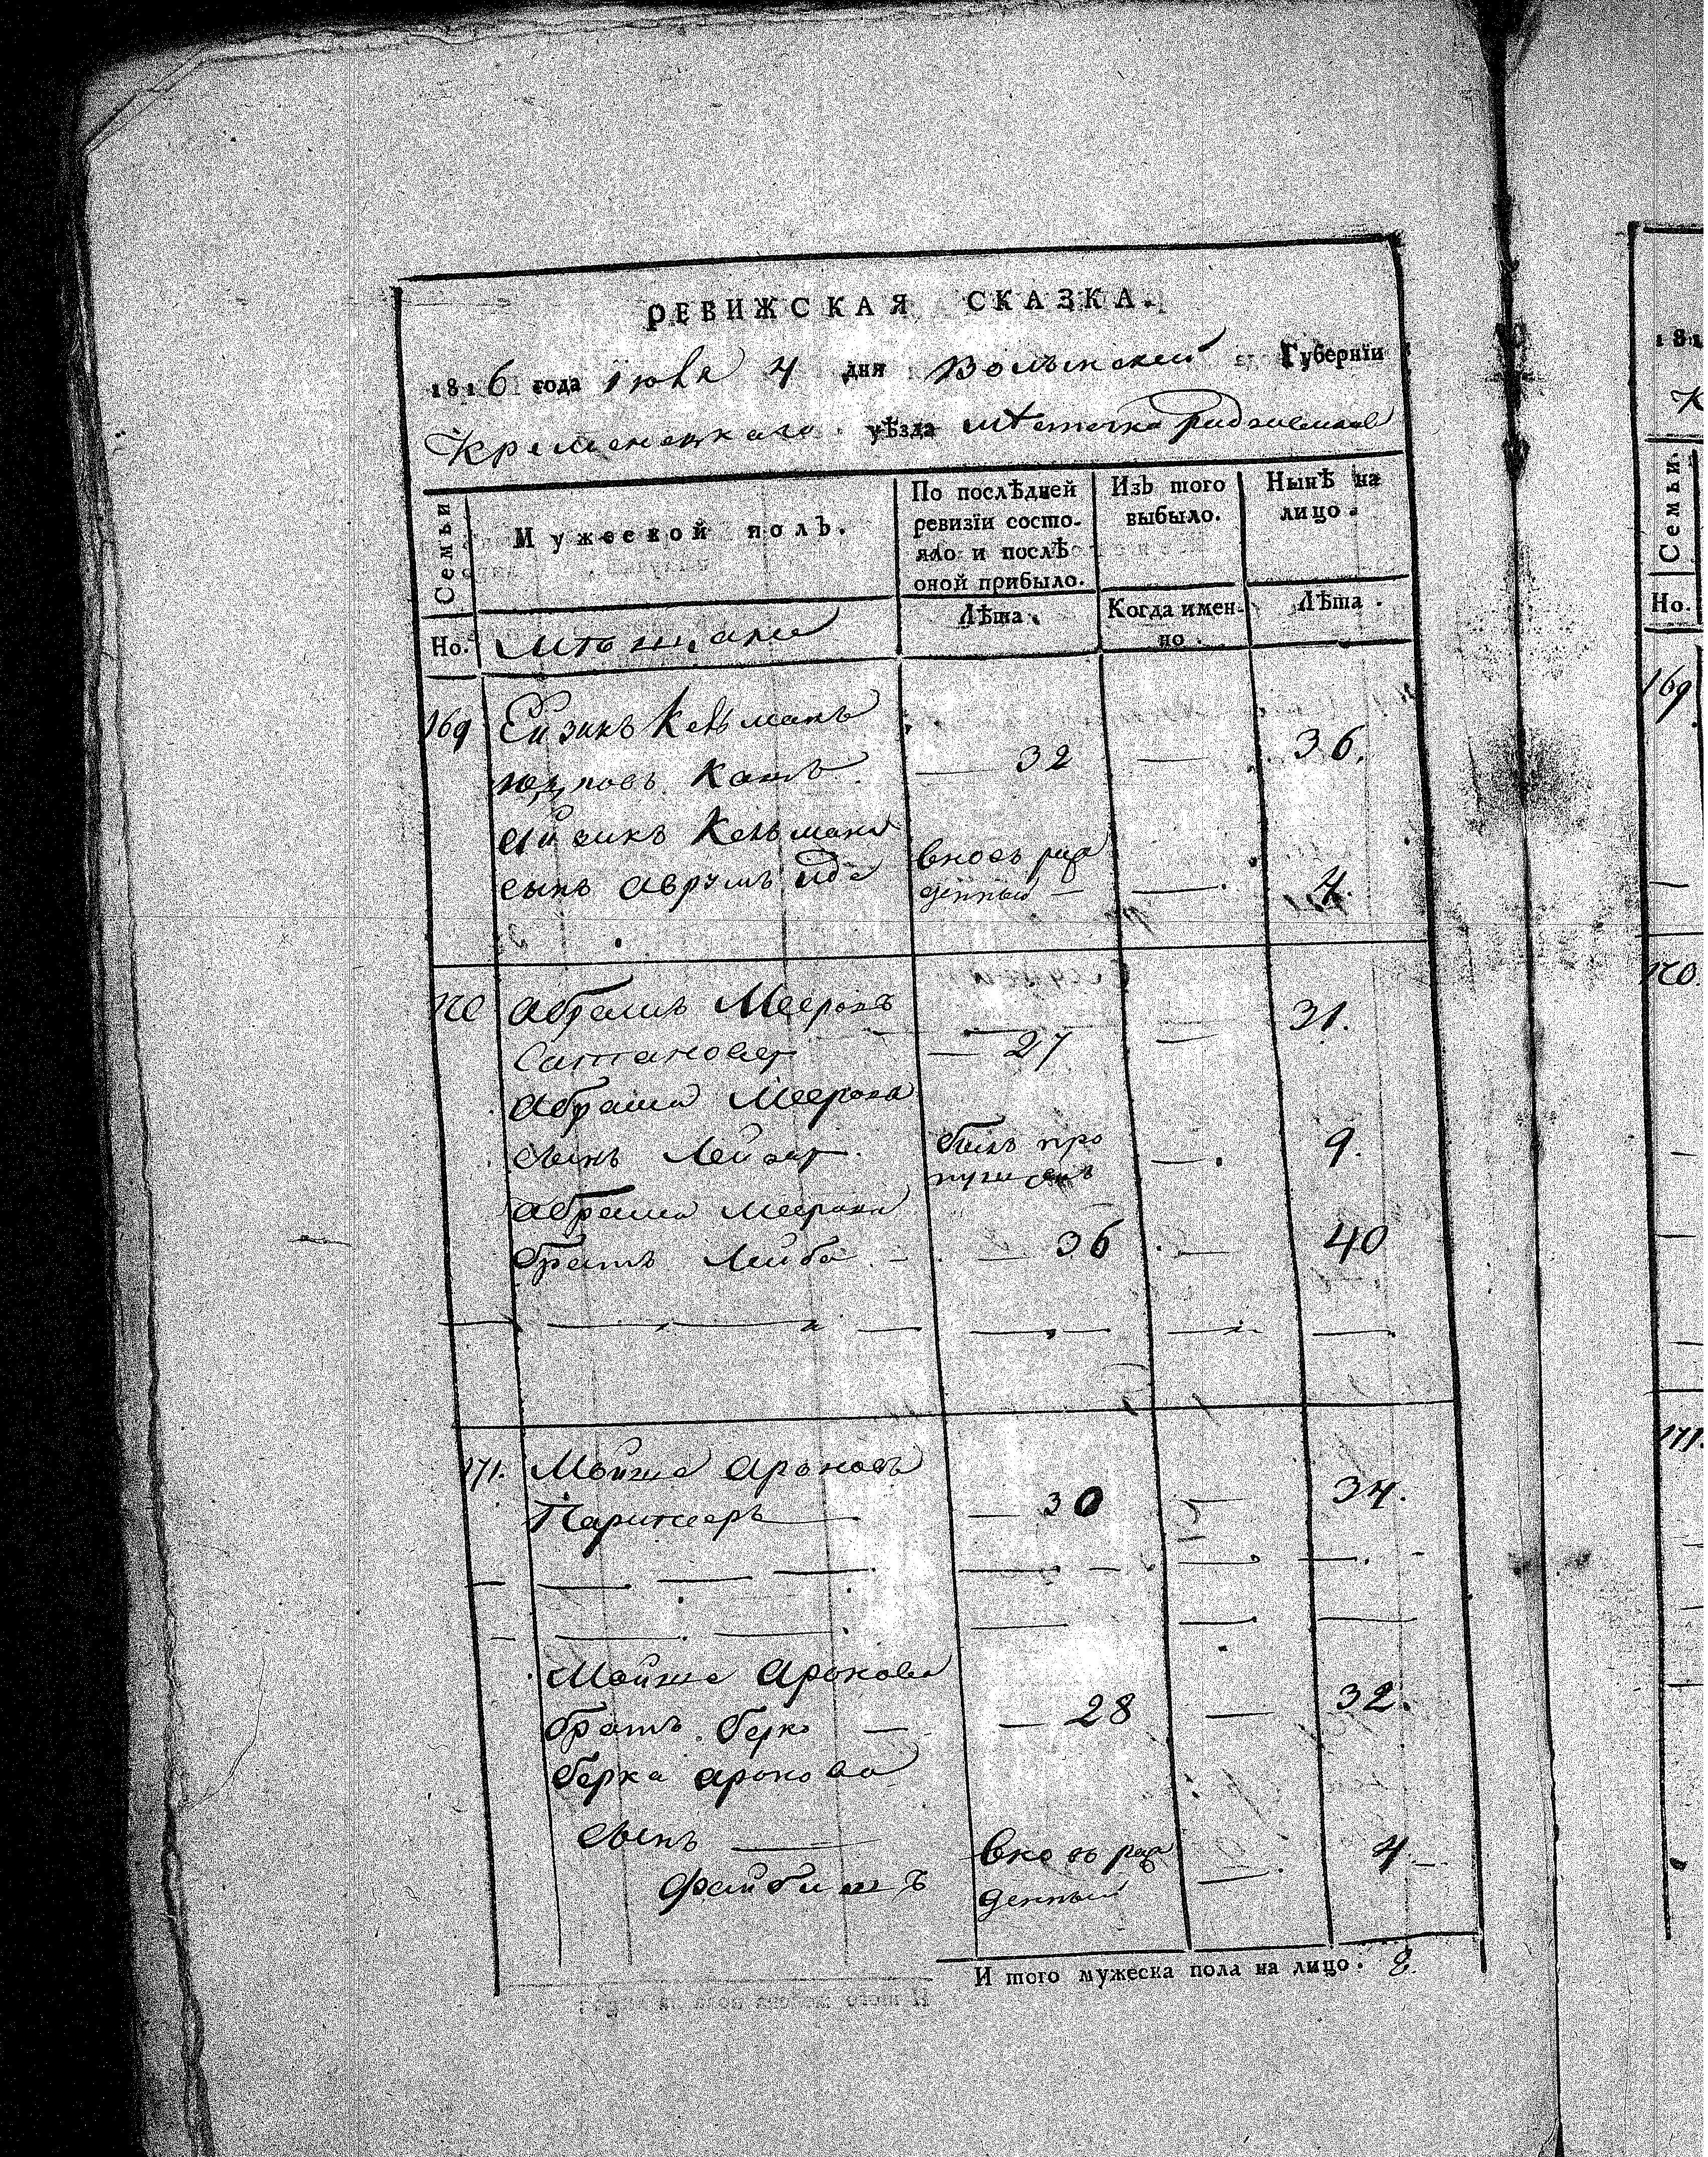 РЕВИЖСКАЯ СКАЗКА.
1816 года Iюля 4 дня Волынской Губерніи
Кременецкаго уѣзда мѣстечка Радзивилова
Семьи
Мужеской полъ.
По послѣдней ревизіи состояло и послѣ оной прибыло.
Изъ того выбыло.
Нынѣ на лицо.
Но.
Мѣщане
Лѣта.
Когда именно.
Лѣта.
169 Ейзикъ Кельманъ
Кацъ — 32 — 36.
Айзикъ Кельмана
сынъ Аврумъ Иде вновь рожденный — — 4.
170 Абрамъ Мееровъ
Сатановер — 27 — 31.
Абрама Меерова
сынъ Лейзер былъ пропущенъ — 9.
Абрама Меерова
братъ Лейба — — 36 — 40
171. Мойше Ароновъ
— 30 — 34.
Мойше Аронова
братъ Берко — — 28 — 32.
Берка Аронова
сынъ —
Файбишъ вновь рожденный — 4 —
И того мужеска пола на лицо. 8
181
К
Семьи.
Но.
169
170.
171.